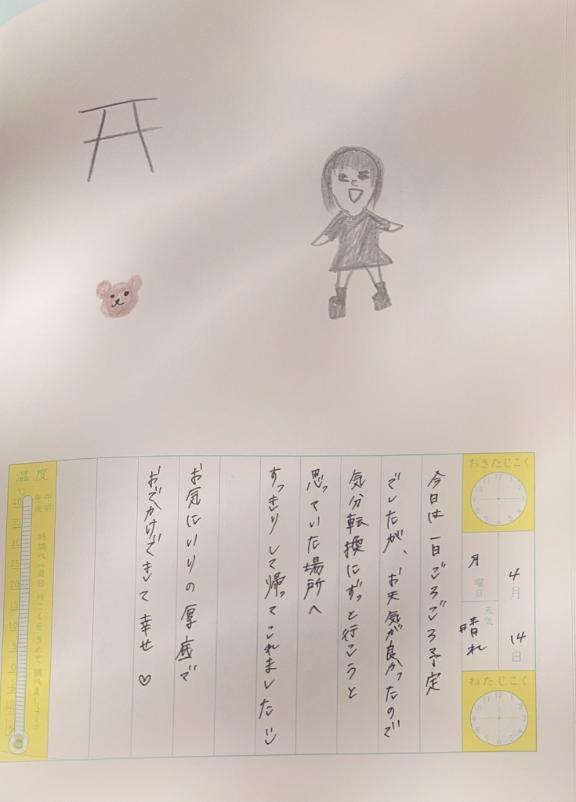 おきたじこく
4月
14日
月
曜日
天気
晴れ
ねたじこく
今日は一日ごろごろ予定
でしたが、お天気が良かったので
気分転換にずっと行こうと
思っていた場所へ
すっきりして帰ってこれました
お気にいりの厚底で
おでかけできて幸せ♡
温度
午前
午後